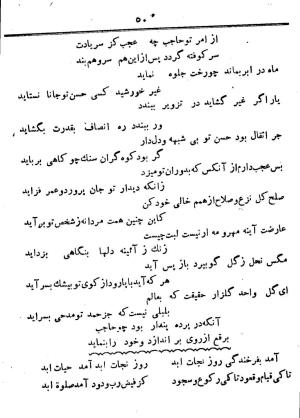 ۵۰
از امر تو حاجب چه عجب کز سر یادت
سر کوفته گردد پس از این هم سر و هم بند
ماه در ابر بماند چو رخت جلوه نماید
غیر خورشید کسی حسن تو جانا نستاید
یار اگر غیر گشاید در تزویر ببندد
ور ببندد ره انصاف بقدرت بگشاید
جر اثقال بود حسن تو بی شبهه و دلدار
گر بود کوه گران سنک چو کاهی برباید
بس عجب دارم از آنکس که بدوران تو میرد
زانکه دیدار تو جان پرورد و عمر فزاید
صلح کل نزع و صلاح از همم خالی خود کن
کاین چنین همت مردانه ز شخص تو برآید
عارضت آینه مهر و مه ار نیست ابت چیست
زنك ز آئینه دلها بنگاهی بزداید
مگس نحل ز گل گو ببرد باز پس آید
هر که آید بابا رود از کوی تو بیشک بسر آید
ای گل واحد گلزار حقیقت که بعالم
بلبلی نیست که جز حمد تو مدحی بسراید
آنکه در پرده پندار بود چو حاجب
برقع از روی بر اندازد و خود را بنماید
آمد بفرخندگی روز نجات ابد روز نجات ابد آمد حیات ابد
تا کی قیام و قعود تا کی رکوع و سجود کز فیض رب ودود آمد صلوة ابد